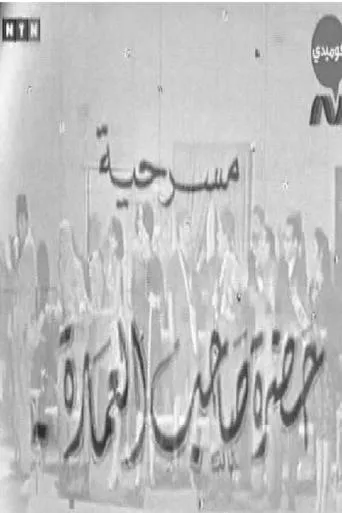 NTN
كوميدي
مسرحية
حضرة صاحب العمارة